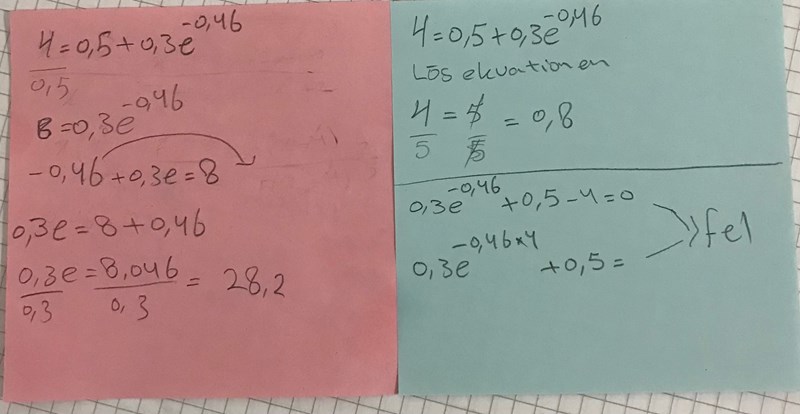 4=0,5+0,3e^-0,46
0,5
8=0,3e^-0,46
-0,46+0,3e=8
0,3e=8+0,46
0,3e/0,3=8,046/0,3= 28,2
4=0,5+0,3e^-0,46
Lös ekvationen
4/5 = 4/5 = 0,8
0,3e^-0,46 +0,5-4=0
0,3e^-0,46×4 +0,5=
fel